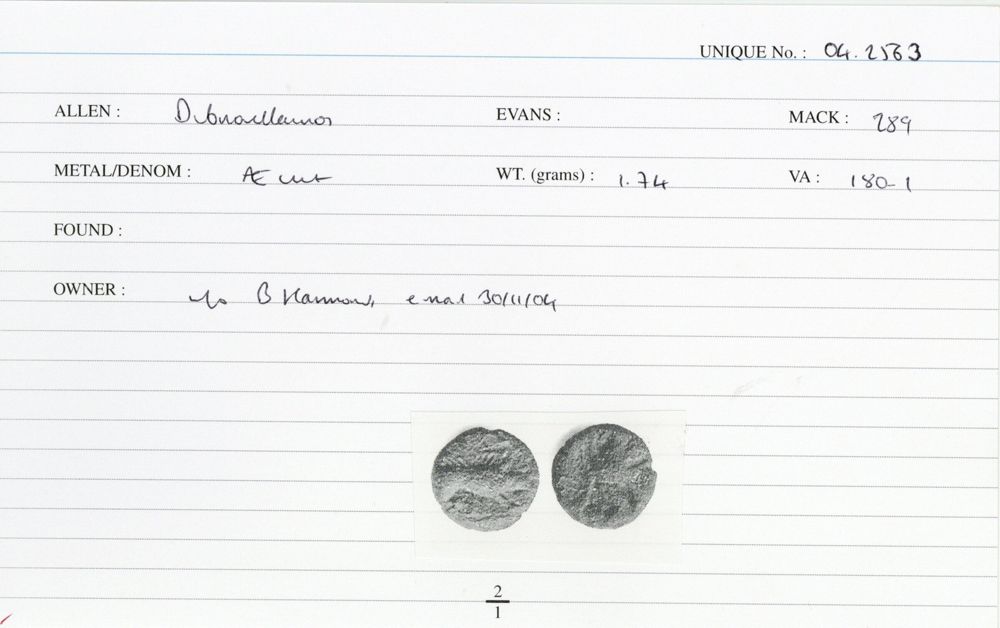 UNIQUE No. : 04.2563
ALLEN : Dubnovellaunos EVANS : MACK : 289
METAL/DENOM : Æ unit WT. (grams) : 1.74 VA : 180-1
FOUND :
OWNER : B Hammond, email 30/11/04
2
1